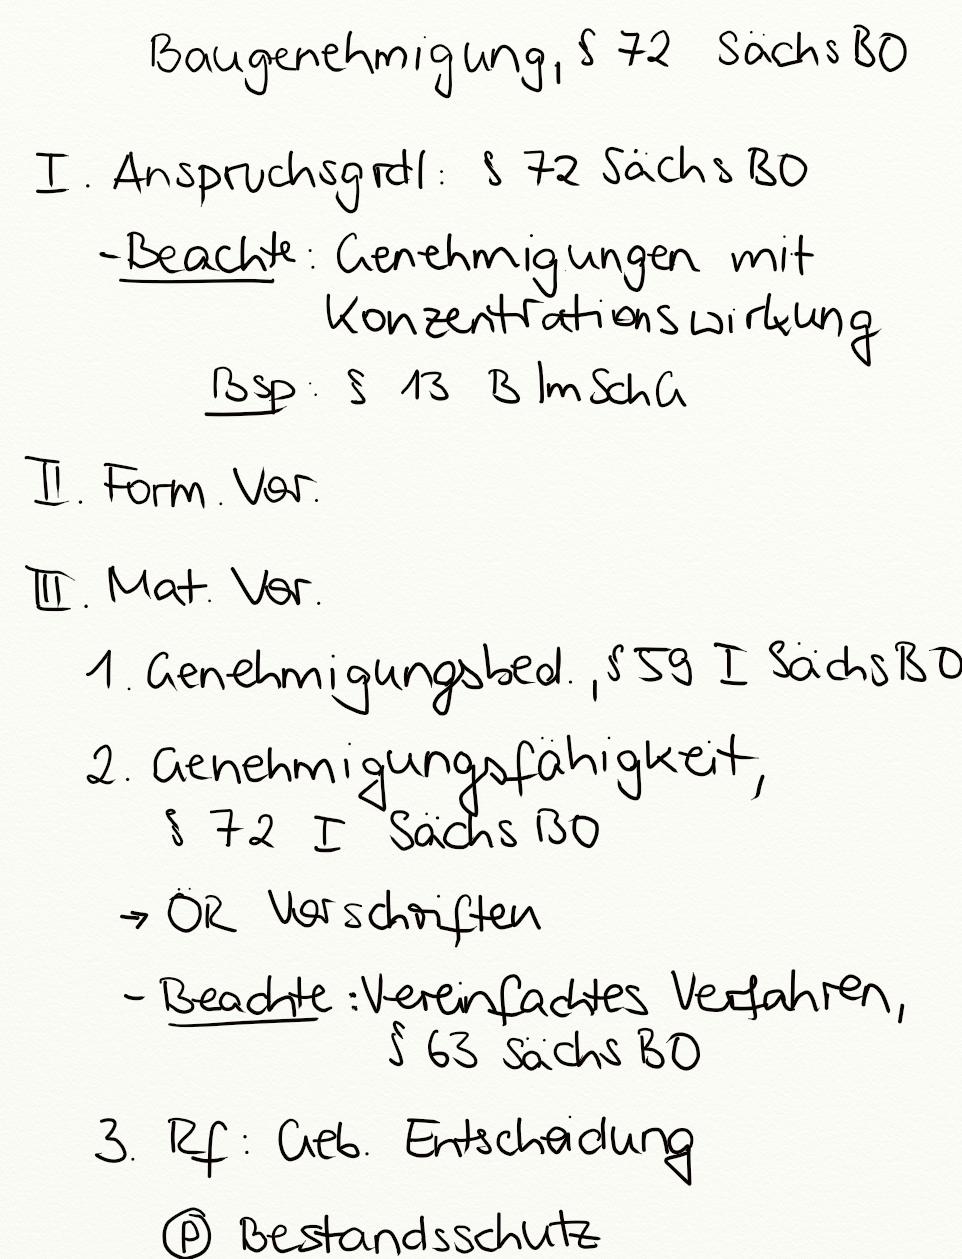 Baugenehmigung, § 72 SächsBO
I. Anspruchsgrdl: § 72 SächsBO
- Beachte: Genehmigungen mit
Konzentrationswirkung
Bsp: § 13 BImSchG
II. Form. Vor.
III. Mat. Vor.
1. Genehmigungsbed., § 59 I SächsBO
2. Genehmigungsfähigkeit,
§ 72 I SächsBO
→ ÖR Vorschriften
- Beachte: Vereinfachtes Verfahren,
§ 63 SächsBO
3. Rf: Geb. Entscheidung
Ⓟ Bestandsschutz